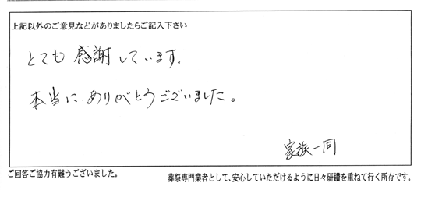 上記以外のご意見などがありましたらご記入下さい
とても感謝しています。
本当にありがとうございました。
家族一同
ご回答ご協力有難うございました。
葬祭専門業者として、安心していただけるように日々研鑽を重ねて行く所存です。